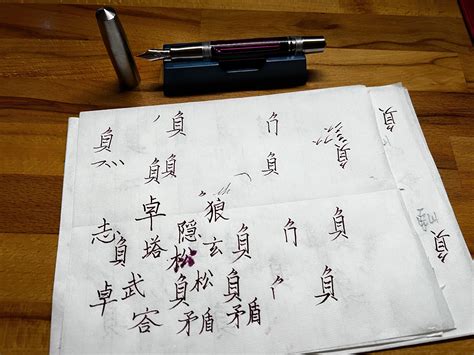 負 負 負 負
負負 負
卓 狼
志 塔 隐 玄 負 負
負 松
卓 武 負 松 負 負
矛盾 矛盾
負